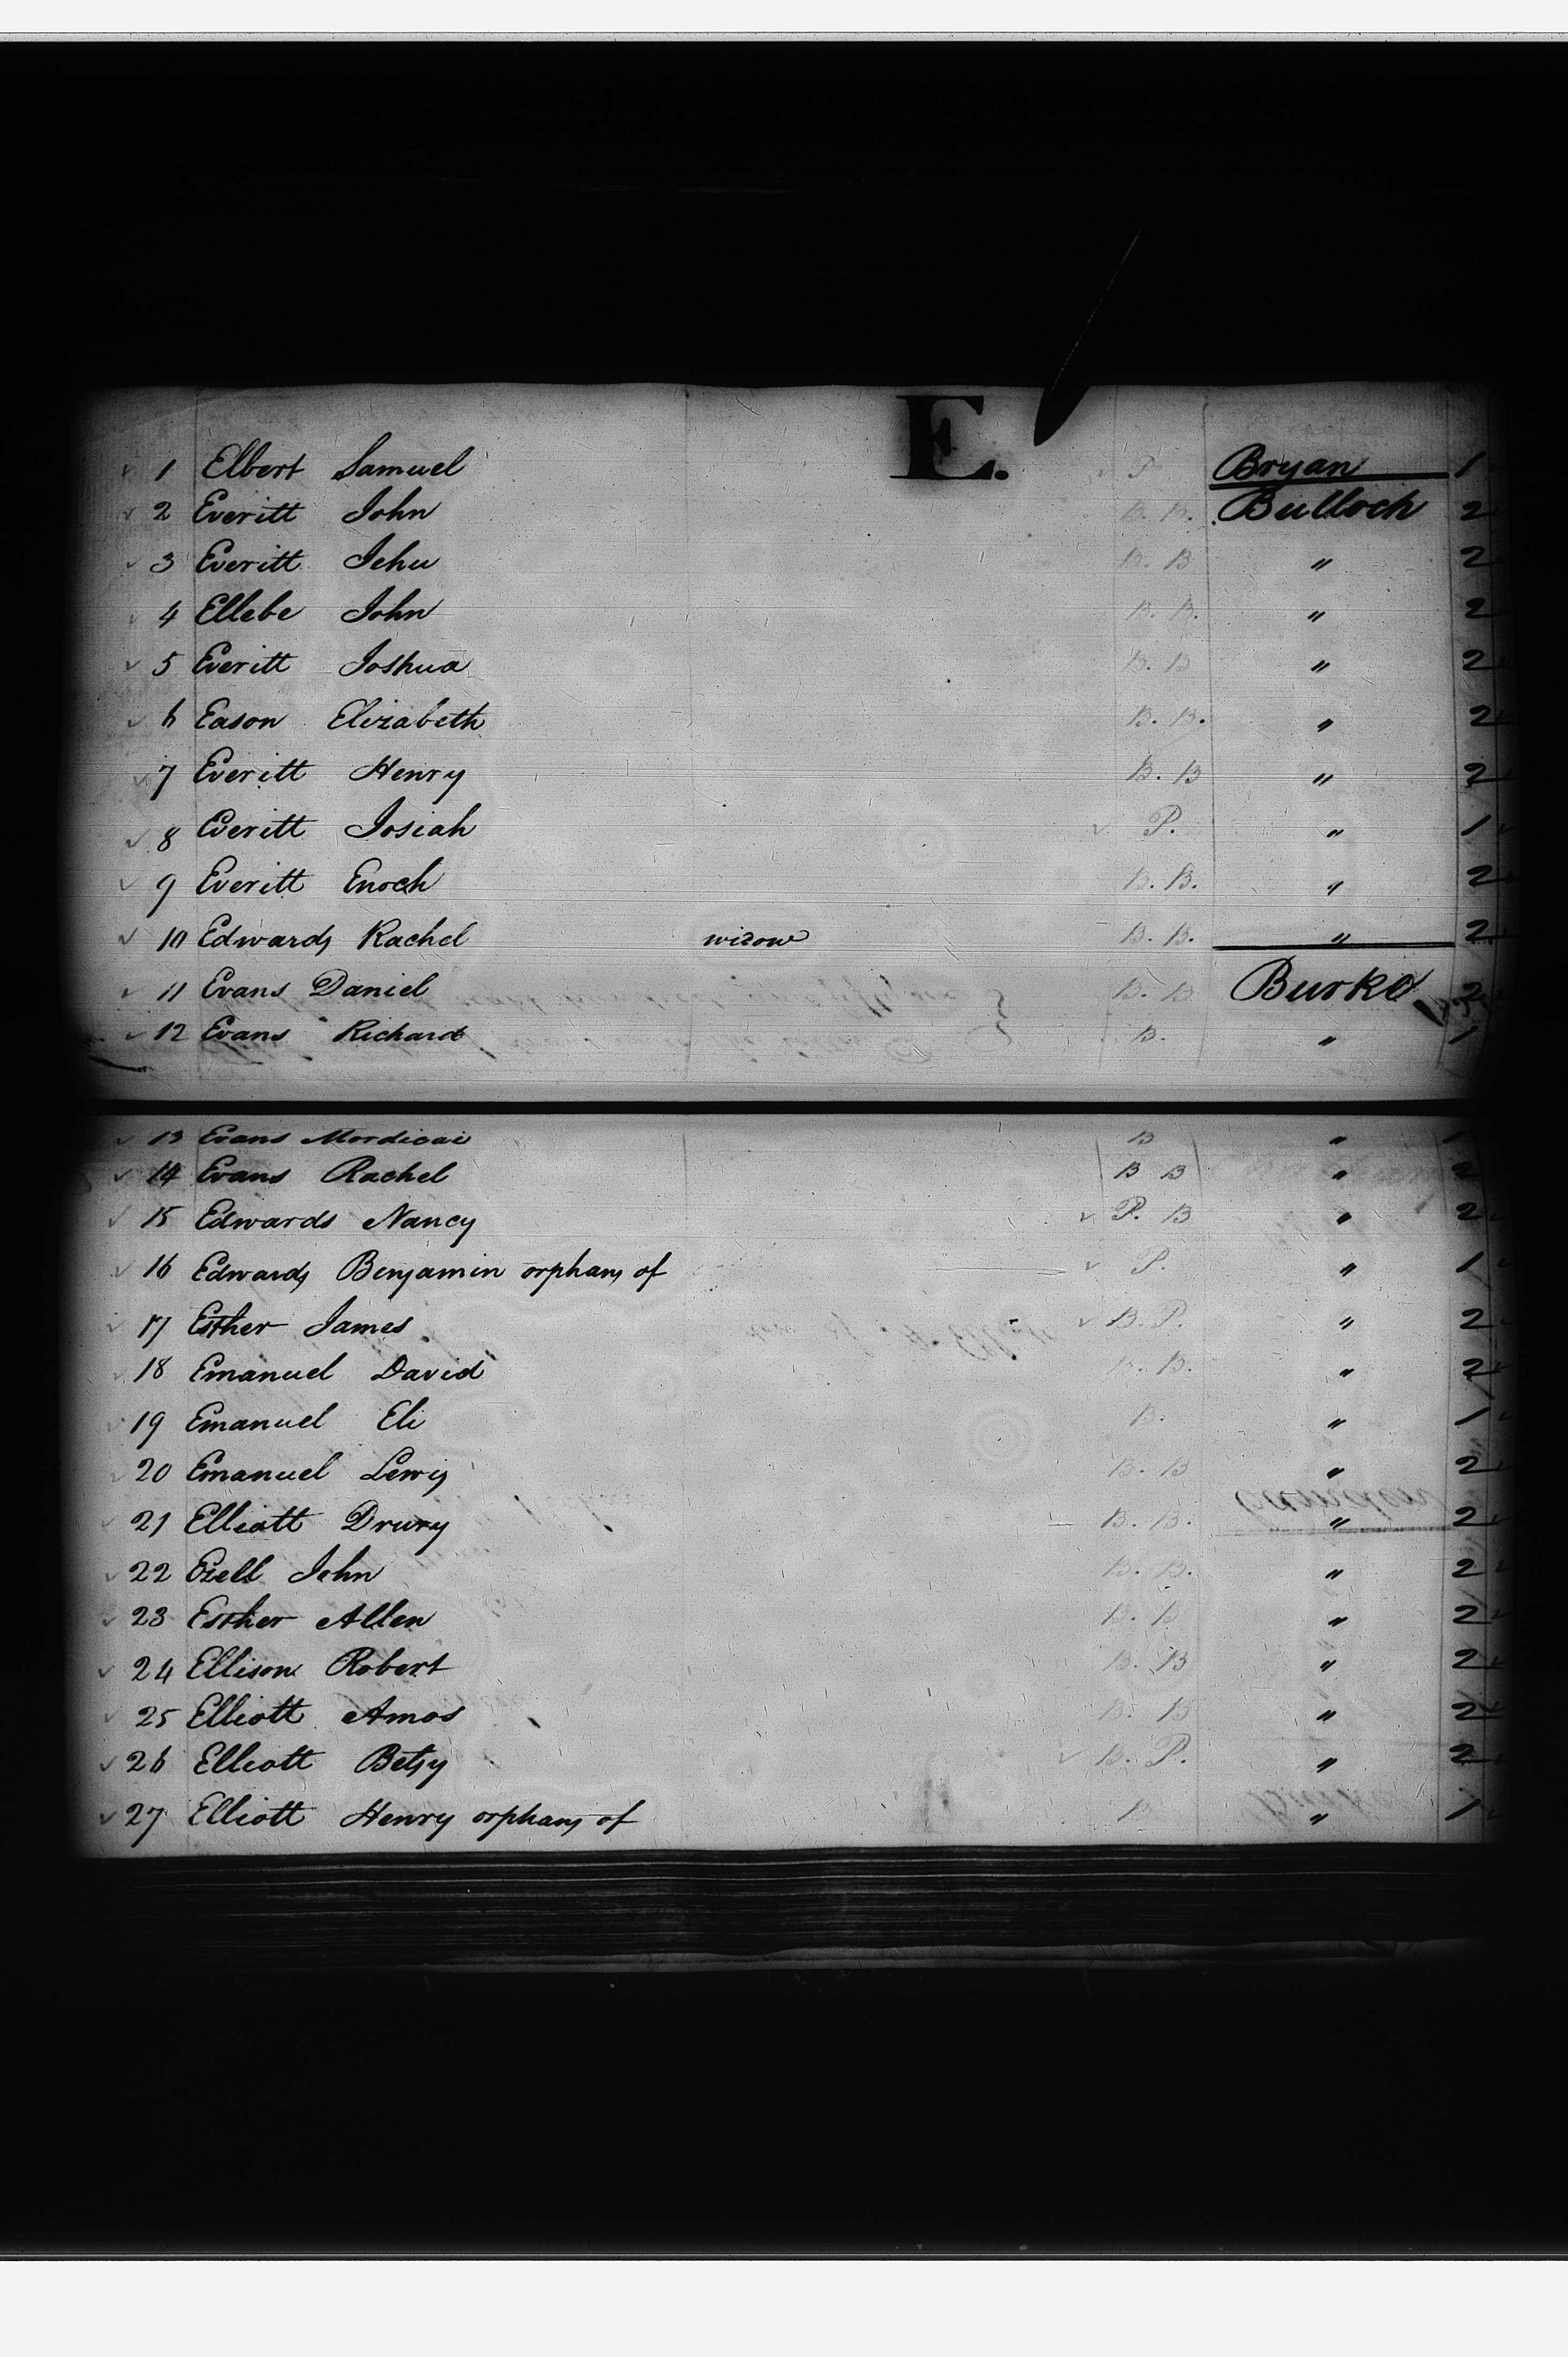 E.
1 Elbert Samuel P. Bryan 1
2 Everitt John B. B. Bulloch 2
3 Everitt Jehu B. B " 2
4 Ellebe John B. B. " 2
5 Everitt Joshua B. B " 2
6 Eason Elizabeth B. B. " 2
7 Everitt Henry B. B " 2
8 Everitt Josiah P. " 1
9 Everitt Enoch B. B. " 2
10 Edwards Rachel widow B. B. " 2
11 Evans Daniel B. B Burke 2
12 Evans Richard B. " 1
13 Evans Mordicai B " 1
14 Evans Rachel B B " 2
15 Edwards Nancy P. B " 2
16 Edwards Benjamin orphans of P. " 1
17 Esther James B. P. " 2
18 Emanuel David B. B. " 2
19 Emanuel Eli B. " 1
20 Emanuel Lewis B. B " 2
21 Elliott Drury B. B. " 2
22 Ezell John B. B. " 2
23 Esther Allen B. B " 2
24 Ellison Robert B. B " 2
25 Elliott Amos B. B " 2
26 Elliott Betsy B. P. " 2
27 Elliott Henry orphans of B " 1